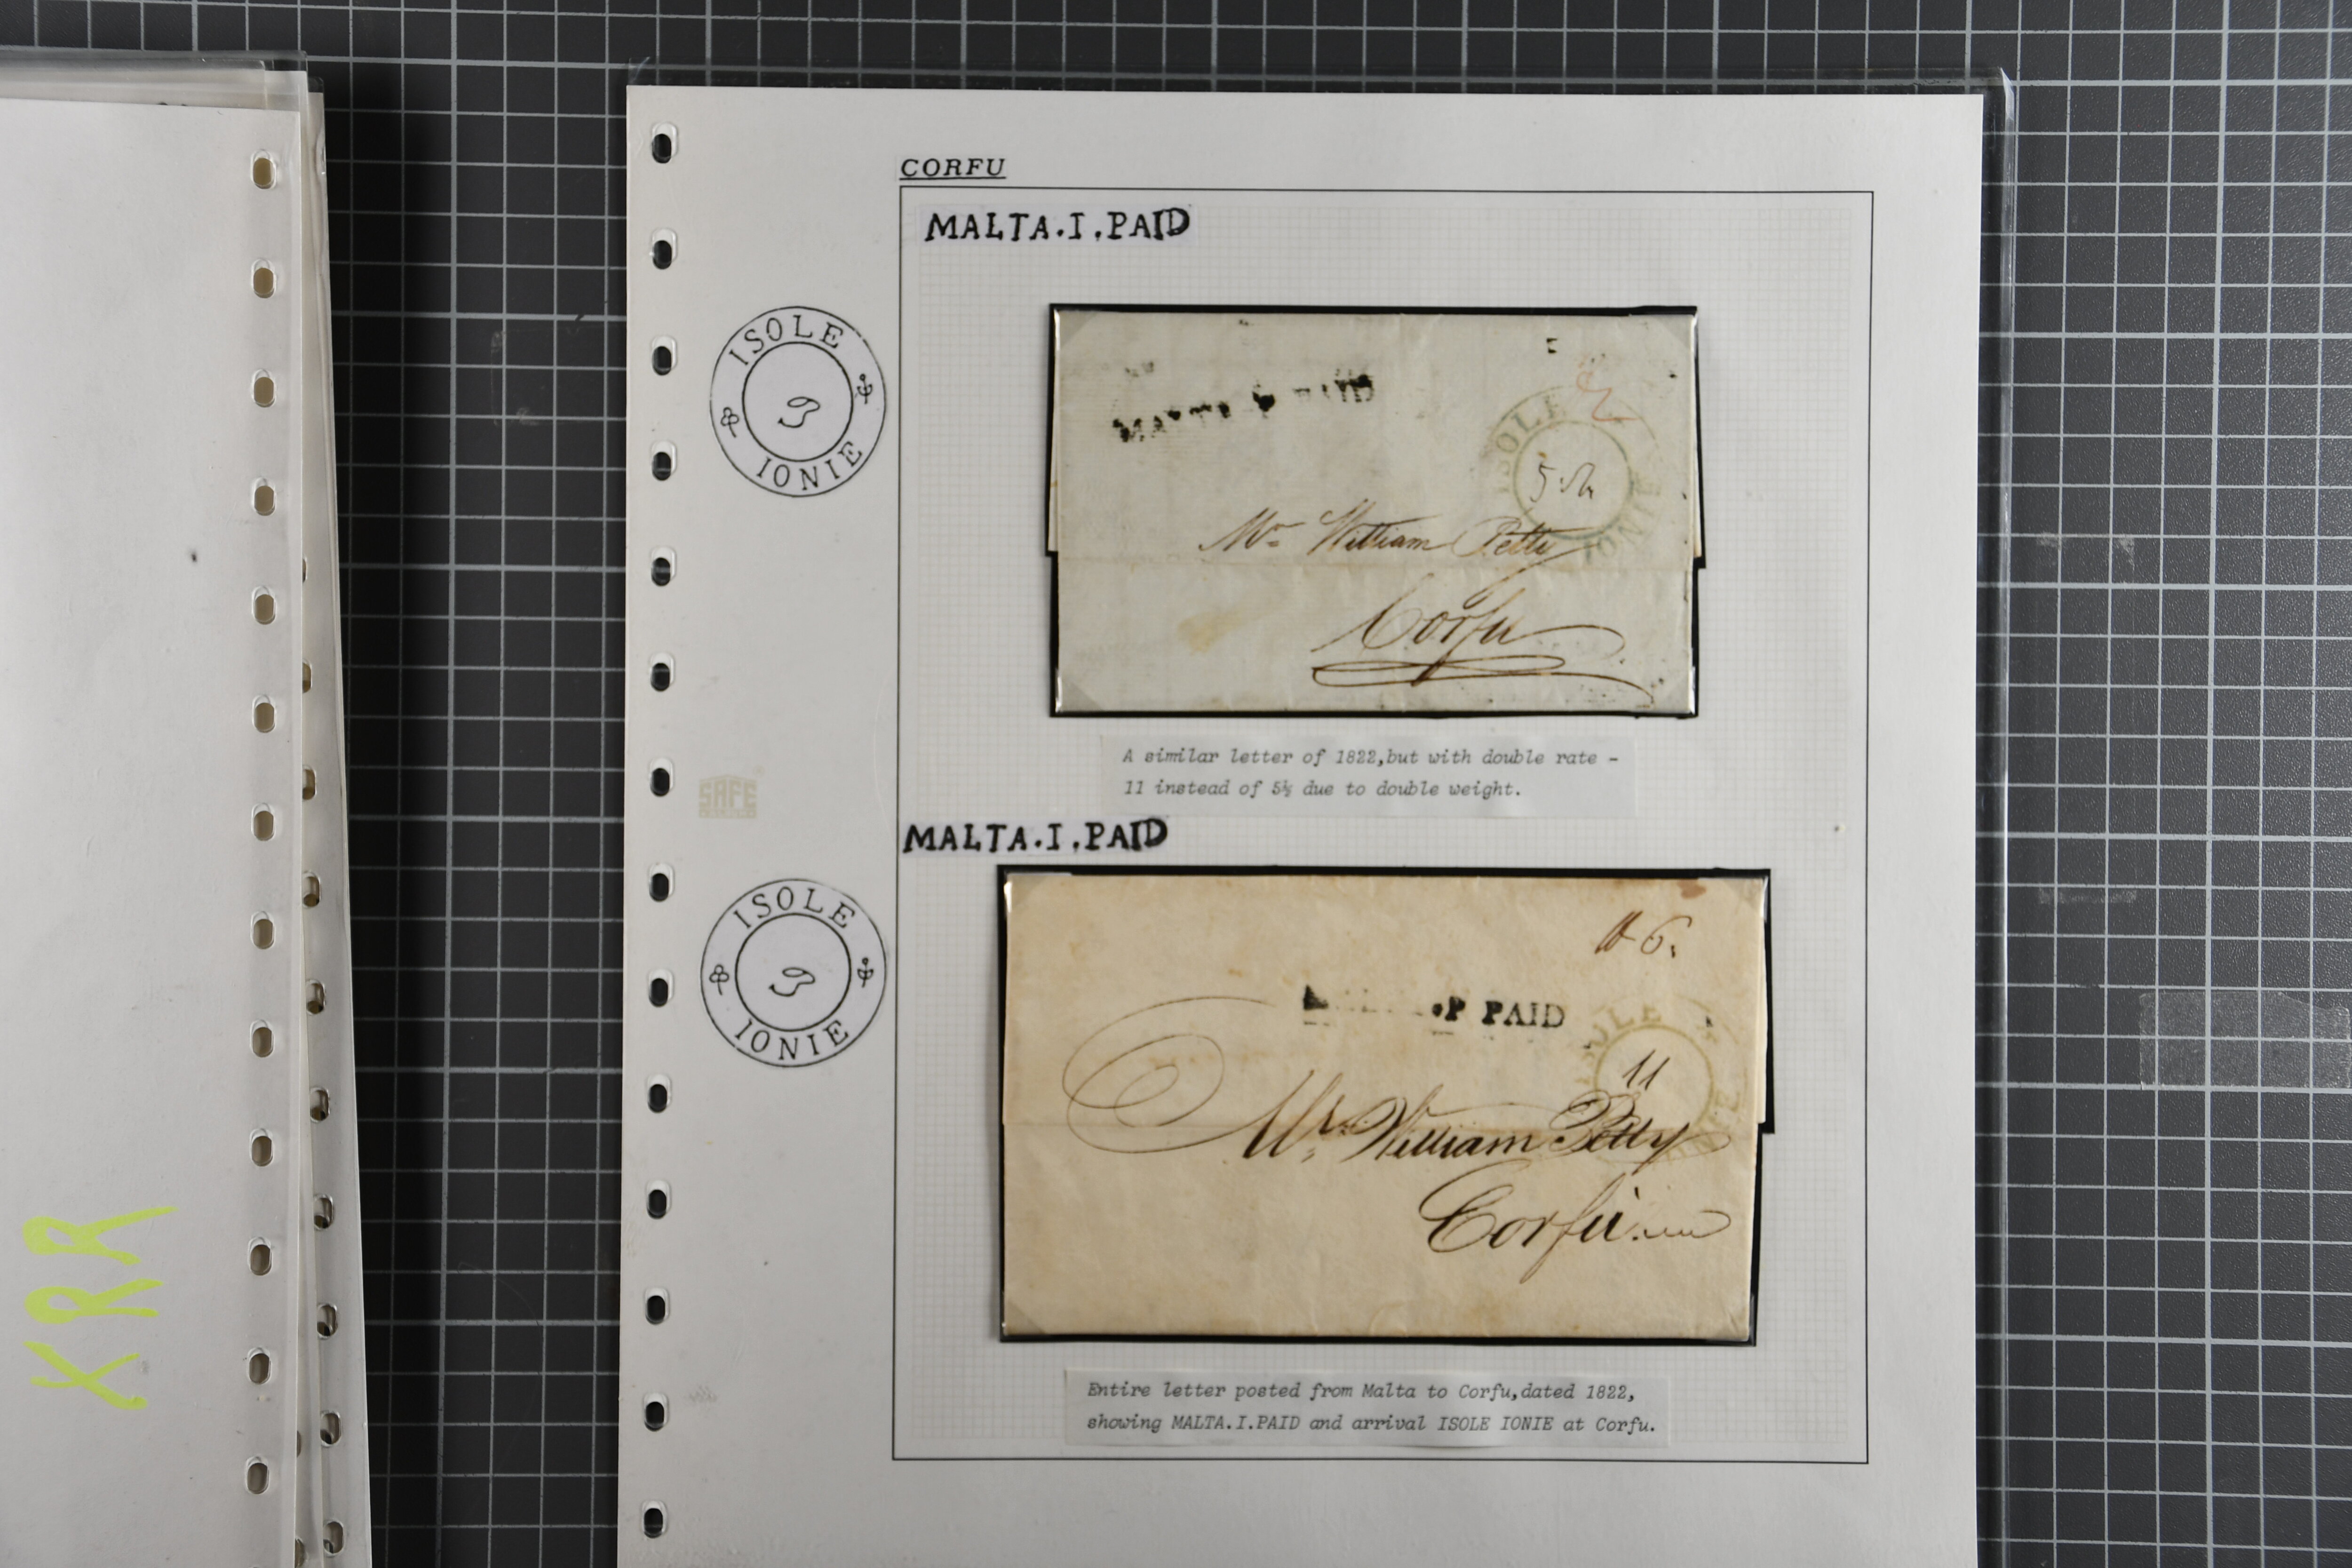 CORFU
MALTA.I.PAID
ISOLE
IONIE
PAID
ISOLE
IONIE
Mr William Petty
Corfu
A similar letter of 1822,but with double rate -
11 instead of 5½ due to double weight.
SAFE
MALTA.I.PAID
ISOLE
IONIE
6.
.P PAID
ISOLE
11
Mr. William Petty
Corfu
Entire letter posted from Malta to Corfu,dated 1822,
showing MALTA.I.PAID and arrival ISOLE IONIE at Corfu.
XRR